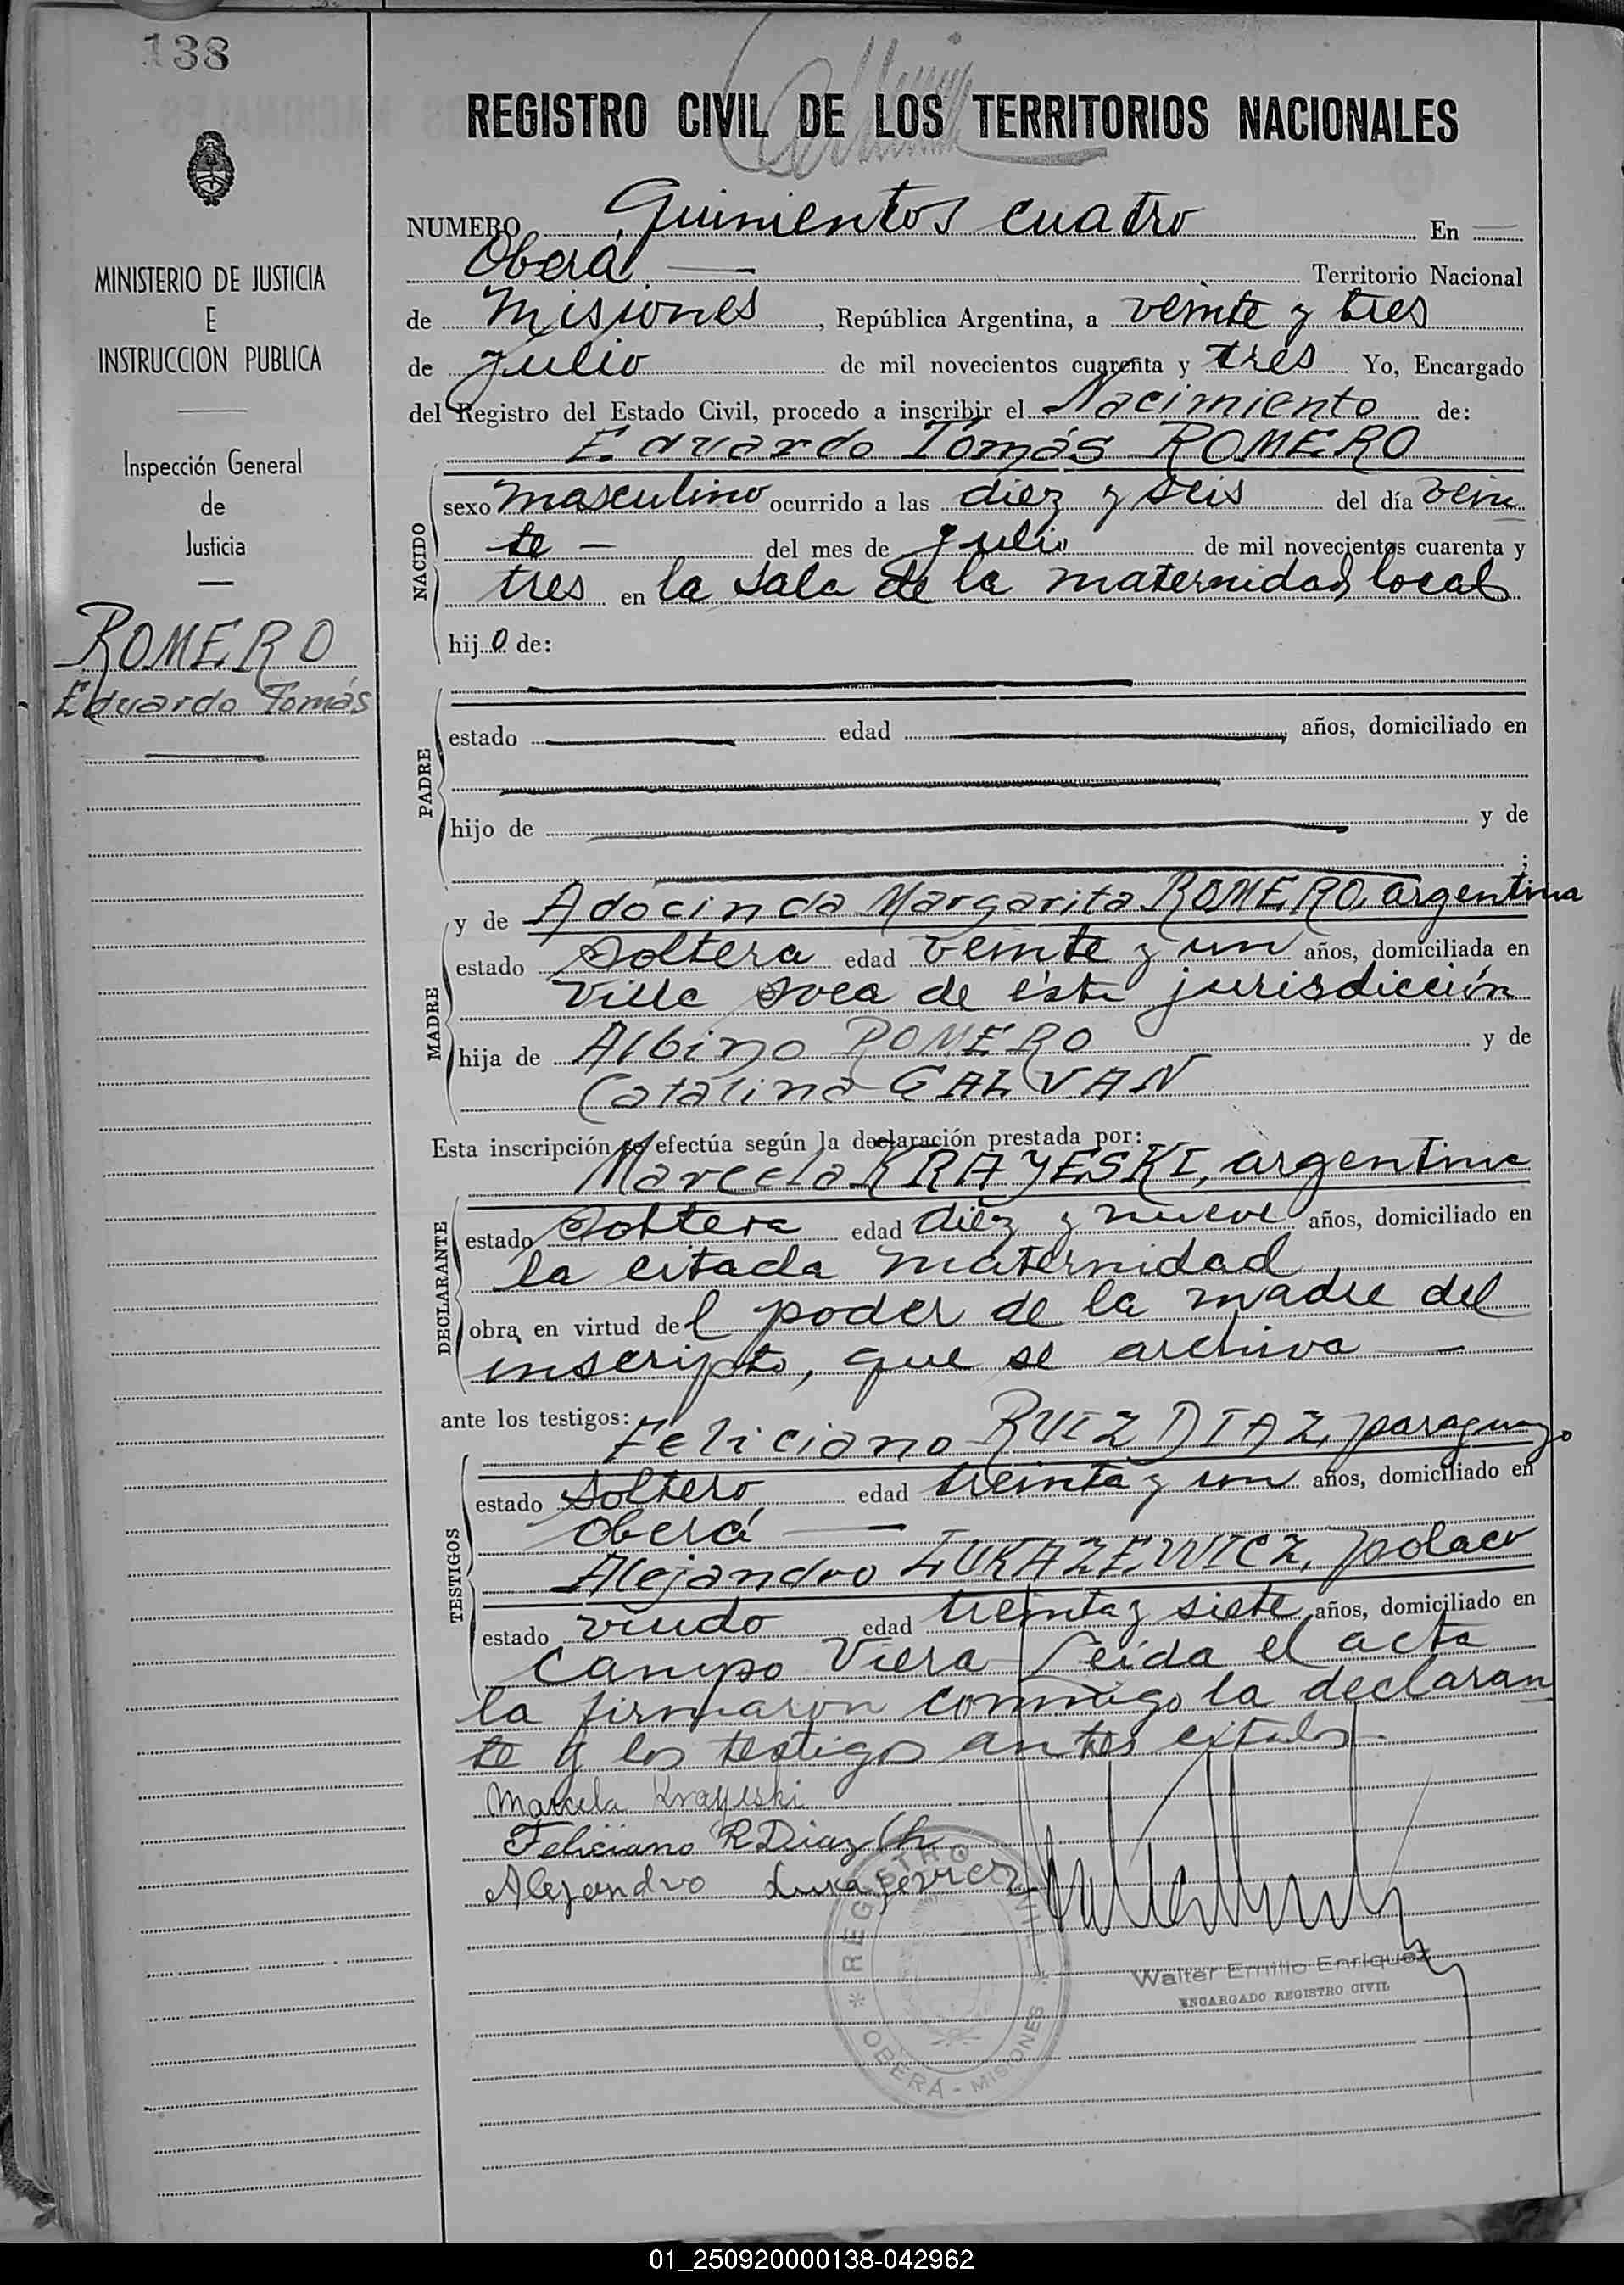 138
REGISTRO CIVIL DE LOS TERRITORIOS NACIONALES
MINISTERIO DE JUSTICIA
E
INSTRUCCION PUBLICA
Inspección General
de
Justicia
ROMERO
Eduardo Tomás
NUMERO Quinientos cuatro En
Oberá Territorio Nacional
de Misiones, República Argentina, a veinte y tres
de Julio de mil novecientos cuarenta y tres Yo, Encargado
del Registro del Estado Civil, procedo a inscribir el Nacimiento de:
Eduardo Tomás ROMERO
NACIDO
sexo masculino ocurrido a las diez y seis del día vein
te — del mes de Julio de mil novecientos cuarenta y
tres en la sala de la maternidad local
hijo de:
PADRE
estado edad años, domiciliado en
hijo de y de
;
MADRE
y de Adocinda Margarita ROMERO, argentina
estado soltera edad veinte y un años, domiciliada en
Villa svea de ésta jurisdicción
hija de Albino ROMERO y de
Catalina GALVAN
Esta inscripción se efectúa según la declaración prestada por:
DECLARANTE
Marcela KRAYESKI, argentina
estado soltera edad diez y nueve años, domiciliado en
la citada maternidad
obra en virtud del poder de la madre del
inscripto, que se archiva —
ante los testigos:
TESTIGOS
Feliciano RUIZ DIAZ, paraguayo
estado soltero edad treinta y un años, domiciliado en
Oberá —
Alejandro LUKAZEWICZ, polaco
estado viudo edad treinta y siete años, domiciliado en
Campo Viera Leída el acta
la firmaron conmigo la declaran
te y los testigos antes citados.
Marcela Krayeski
Feliciano R Diaz (h
Alejandro
REGISTRO
OBERÁ - MISIONES
Walter Emilio Enriquez
ENCARGADO REGISTRO CIVIL
01_250920000138-042962